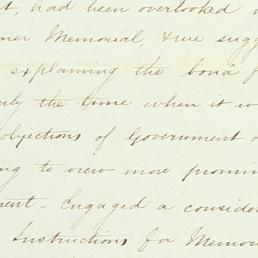 t, had been overlooked
ner Memorial, & we sugg
explaining the bonâ f
ly the time when it w
objections of Government o
ing to view more promin
ment - Engaged a consider
Instructions for Memor